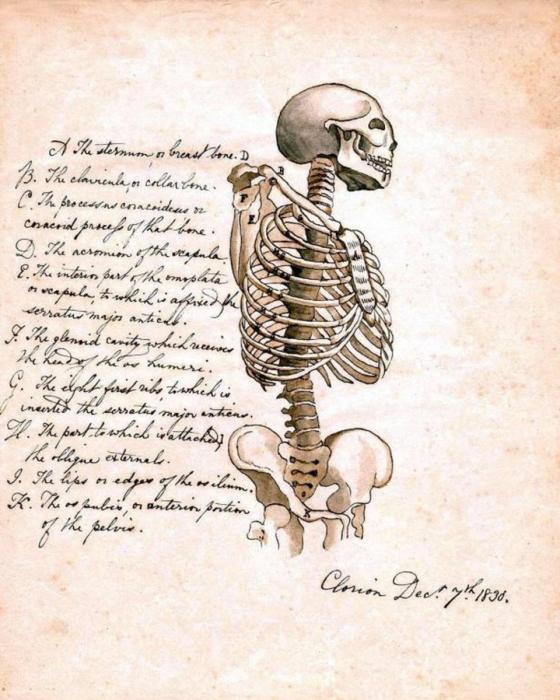 A The sternum or breast bone.
B. The clavicula or collar bone.
C. The processus coracoideus or
coracoid process of that bone.
D. The acromion of the scapula
E. The interior part of the omoplata
or scapula, to which is affixed the
serratus major anticus.
F. The glenoid cavity which receives
the head of the os humeri.
G. The eight first ribs, to which is
inserted the serratus major anticus.
H. The part to which is attached
the oblique externals.
I. The lips or edges of the os ilium.
K. The os pubis, or anterior portion
of the pelvis.
D
B
F
E
A
K
Decr 7th 1830.